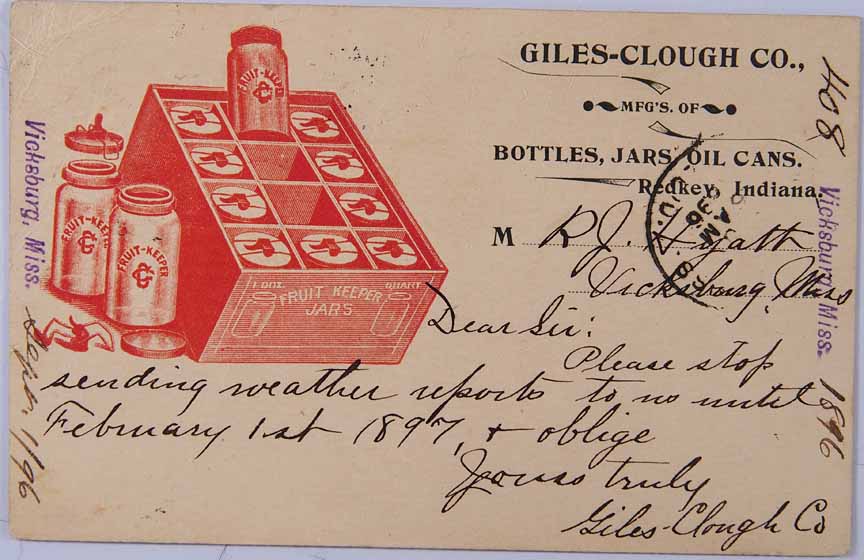 GILES-CLOUGH CO.,
MFG'S. OF
BOTTLES, JARS, OIL CANS.
Redkey, Indiana.
M R J. Hyatt
Vicksburg, Miss
Dear Sir:
Please stop
sending weather reports to us until
February 1st 1897, & oblige
Yours truly
Giles-Clough Co
FRUIT-KEEPER
GC
FRUIT-KEEPER
GC
FRUIT-KEEPER
GC
1 DOZ. QUART
FRUIT KEEPER
JARS
Vicksburg, Miss.
1/96
408
Vicksburg, Miss.
1896
AM
96